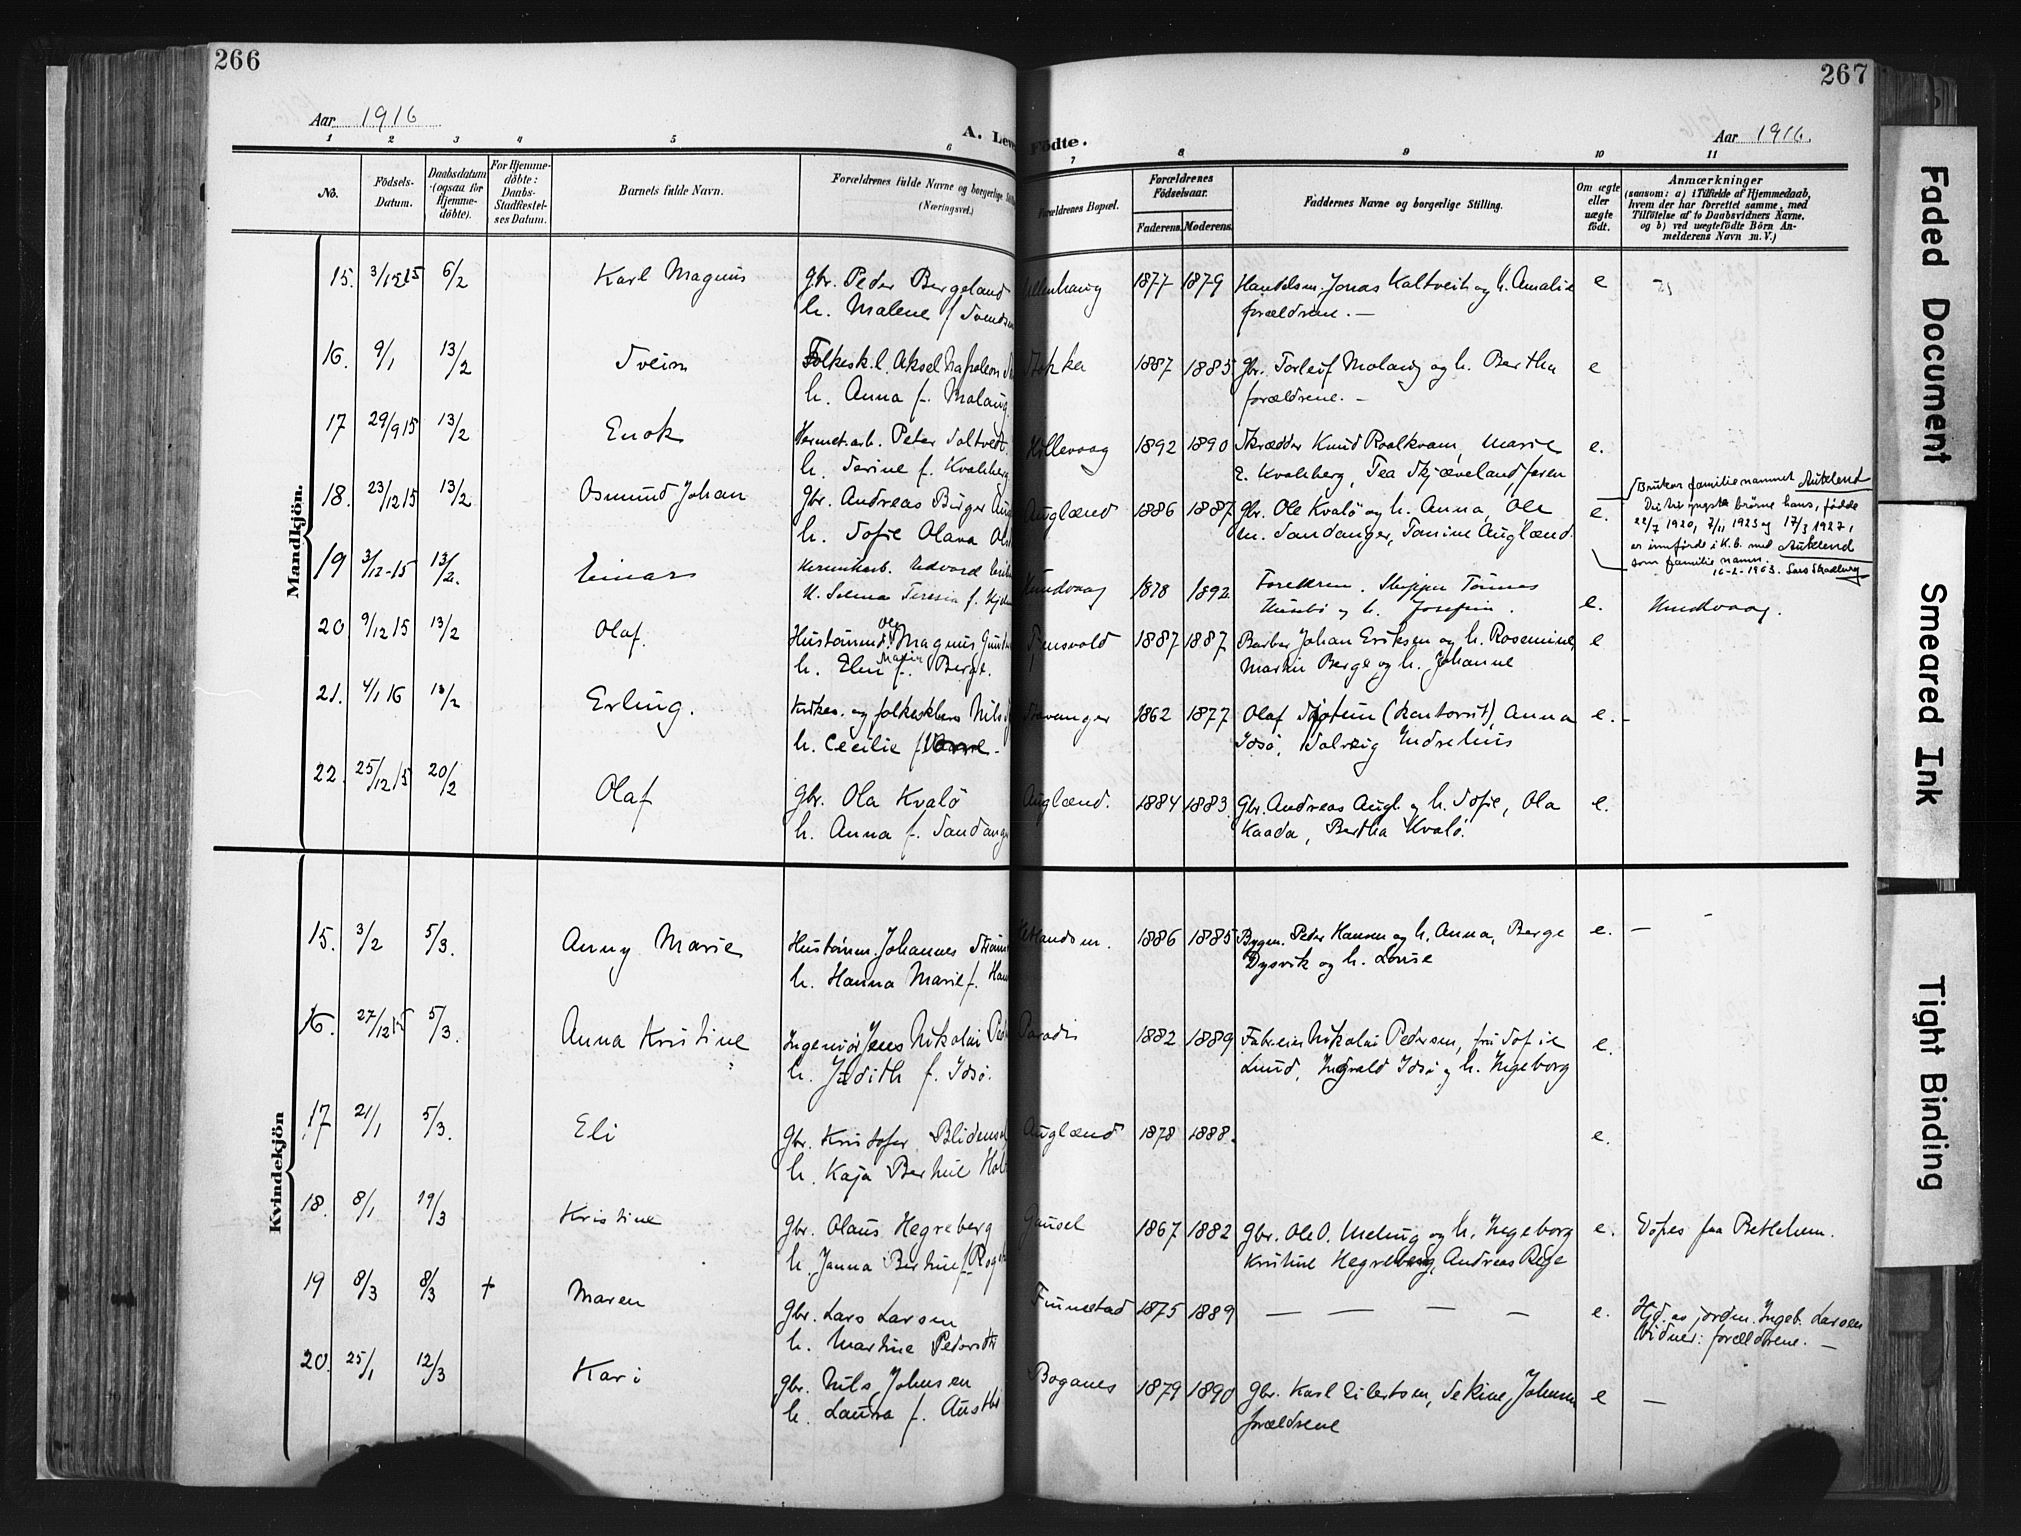 266
267
Aar 1916
Aar 1916.
A. Leve
Födte.
1 2 3 4 5 6 7 8 9 10 11
No.
Födsels-
Datum.
Daabsdatum
(ogsaa for
Hjemme-
döbte).
For Hjemme-
döbte:
Daabs-
Stadfæstel-
ses Datum.
Barnets fulde Navn.
Forældrenes fulde Navne og borgerlige Stilli
(Næringsvei.)
Forældrenes Bopæl.
Forældrenes
Födselsaar.
Faderens. Moderens.
Faddernes Navne og borgerlige Stilling.
Om ægte
eller
uægte
födt.
Anmærkninger
(saasom: a) i Tilfælde af Hjemmedaab,
hvem der har forrettet samme, med
Tilföielse af to Daabsvidners Navne.
og b) ved uægtefödte Börn An-
melderens Navn m. V.)
Mandkjön.
15. 3/12 15 6/2 Karl Magnus Gbr. Peder Bergeland 1877 1879 Handelsm. Jonas Kaltveit og h. Amalie e
h. Malene f Svends forældrene. —
16. 9/1 13/2 Svein Folkesk.l. Aksel Napoleon Stokka 1887 1885 Gbr. Torleif Molaug og h. Bertha e
h. Anna f. Molaug forældrene. -
17 29/9 15 13/2 Enok Hermet.arb. Peter Saltvedt Hillevaag 1892 1890 Skrædder Knud Roalkvam, Marie e.
h. Serine f. Kvaleberg E. Kvaleberg, Tea Skjæveland, faren
18. 23/12 15 13/2 Osmund Johan Gbr. Andreas Birger Aug Auglænd 1886 1887 Gbr. Ole Kvalö og h. Anna, Ole e.
h. Sofie Olava Sandanger, Tomine Auglænd.
Brukar familienamnet Aukland
Dei tri yngste brørne hans, fødde
22/7 1920, 7/11 1923 og 17/3 1927,
er innførde i K.b. med Aukland
som familienamn.
16-2-1963.
19 3/12-15 13/2. Einar Edvard Hundvaag 1878 1892 Forældren. Skipper Tønnes
H. Selma Teresia f. Husebö og h. Josefine. e. Hundvaag.
20 9/12 15 13/2 Olaf. Hustömmd. Ole Magnus Tjensvold 1887 1887 Barber Johan Eriksen og h. Rosemine, e
h. Elen Marie f. Berge. Martin Berge og h. Johanne
21. 4/1 16 13/2 Erling. Kirkes. og folkeskl. Nils Stavanger 1862 1877 Olaf (kontorist), Anna e. -
h. Cecilie f. Idsö, Solveig Endrelius
22. 25/12 15 20/2 Olaf Gbr. Ola Kvalö Auglænd. 1884 1883. Gbr. Andreas Augl. og h. Sofie, Ola e.
h. Anna f. Sandange Kaada, Bertha Kvalö.
Kvindekjön
15. 3/2 5/3. Anny Marie Hustömm. Johannes 1886 1885 Bygm. Peter Hansen og h. Anna, Berge e. —
h. Hanna Marie f. Han Dysvik og h. Louise
16. 27/12 15 5/3. Anna Kristine Ingeniör Jens Nikolai Ped Paradis 1882 1889 Fabreier Nikolai Pedersen, fru Sofie e.
h. Judith f. Idsö. Lund, Ingvald Idsö og h. Ingeborg
17. 21/1 5/3. Eli Gbr. Kristofer Blidens Auglænd 1878 1888. e.
h. Kaja Berthine Hol
18. 8/1 19/3 Kristine Gbr. Olaus Hegreberg Gausel 1867 1882 Gbr. Ole O. Meling og h. Ingeborg e. Döpes paa Betlehem.
h. Janna Bertine f. Rog Kristine Hegreberg, Andreas Rege
19 8/3 8/3 + Maren Gbr. Lars Larsen Finnestad 1875 1889 — — — — e. Hjd. av jordm. Ingeb. Larsen
h. Martine Pedersdtr Vidner: forældrene. —
20. 25/1 12/3 Kari Gbr. Nils Johnsen Boganes 1879 1890 Gbr. Karl Eilertsen, Sekine Johnsen e —
h. Laura f. Austbö forældrene
Faded Document
Smeared Ink
Tight Binding